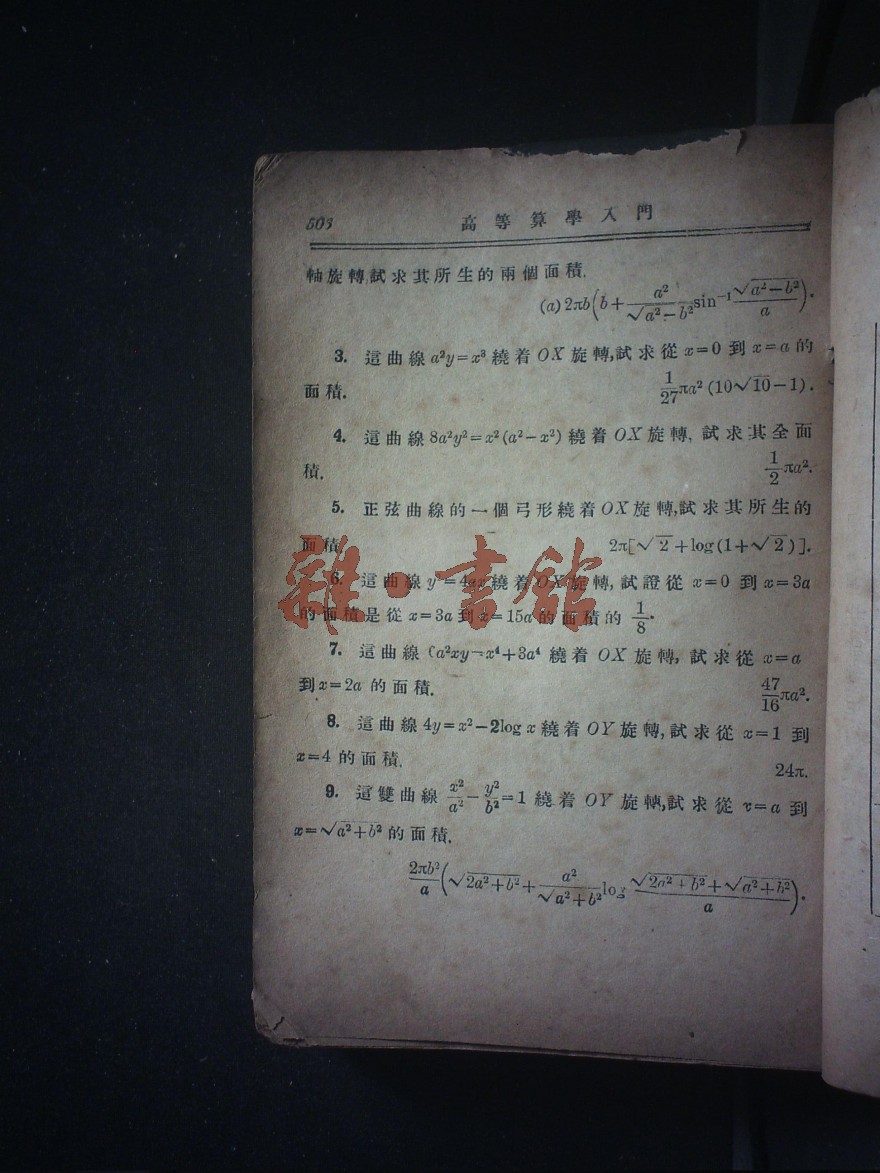 503 高等算學入門
軸旋轉,試求其所生的兩個面積.
(a) 2πb(b + a²/√(a²−b²) sin⁻¹ √(a²−b²)/a).
3. 這曲線 a²y=x³ 繞着 OX 旋轉,試求從 x=0 到 x=a 的
面積. 1/27 πa² (10√10−1).
4. 這曲線 8a²y²=x²(a²−x²) 繞着 OX 旋轉, 試求其全面
積. 1/2 πa².
5. 正弦曲線的一個弓形繞着 OX 旋轉,試求其所生的
面積. 2π[√2+log(1+√2)].
6. 這曲線 y²=4ax 繞着 OX 旋轉, 試證從 x=0 到 x=3a
的面積是從 x=3a 到 x=15a 的面積的 1/8.
7. 這曲線 (a²xy=x⁴+3a⁴ 繞着 OX 旋轉, 試求從 x=a
到 x=2a 的面積. 47/16 πa².
8. 這曲線 4y=x²−2log x 繞着 OY 旋轉,試求從 x=1 到
x=4 的面積. 24π.
9. 這雙曲線 x²/a² − y²/b² = 1 繞着 OY 旋轉,試求從 x=a 到
x=√(a²+b²) 的面積.
2πb²/a (√(2a²+b²) + a²/√(a²+b²) log (√(2a²+b²)+√(a²+b²))/a).
雜·書館